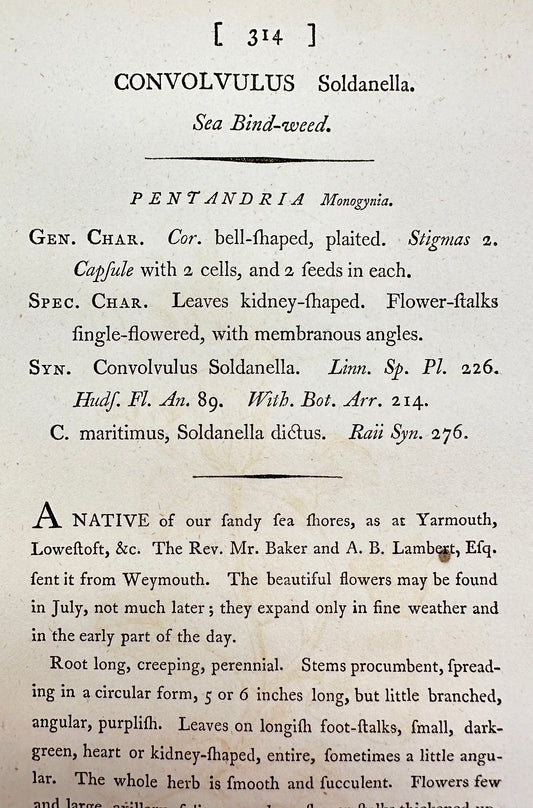 [ 314 ]
CONVOLVULUS Soldanella.
Sea Bind-weed.
PENTANDRIA Monogynia.
GEN. CHAR. Cor. bell-ſhaped, plaited. Stigmas 2.
Capſule with 2 cells, and 2 ſeeds in each.
SPEC. CHAR. Leaves kidney-ſhaped. Flower-ſtalks
ſingle-flowered, with membranous angles.
SYN. Convolvulus Soldanella. Linn. Sp. Pl. 226.
Hudſ. Fl. An. 89. With. Bot. Arr. 214.
C. maritimus, Soldanella dictus. Raii Syn. 276.
A NATIVE of our ſandy ſea ſhores, as at Yarmouth,
Loweſtoft, &c. The Rev. Mr. Baker and A. B. Lambert, Eſq.
ſent it from Weymouth. The beautiful flowers may be found
in July, not much later; they expand only in fine weather and
in the early part of the day.
Root long, creeping, perennial. Stems procumbent, ſpread-
ing in a circular form, 5 or 6 inches long, but little branched,
angular, purpliſh. Leaves on longiſh foot-ſtalks, ſmall, dark-
green, heart or kidney-ſhaped, entire, ſometimes a little angu-
lar. The whole herb is ſmooth and ſucculent. Flowers few
and large, axillary,